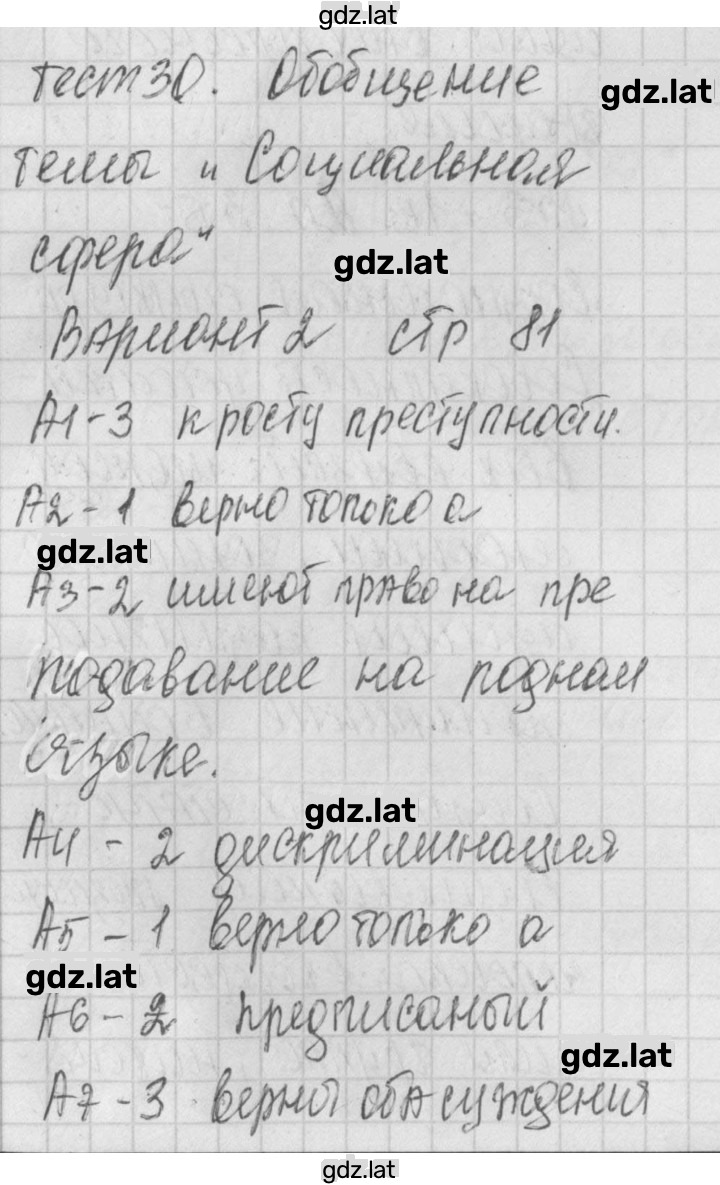 gdz.lat
тест 30. Обобщение
gdz.lat
темы и Социальная
сфера"
gdz.lat
Вариант 2 стр 81
А1-3 к росту преступности.
А2-1 верно только а
gdz.lat
А3-2 имеют право на пре
подавание на родном
языке.
gdz.lat
А4 - 2 дискриминация
А5 - 1 верно только а
gdz.lat
А6 - 2 предписаный
gdz.lat
А7 - 3 верны оба суждения
gdz.lat